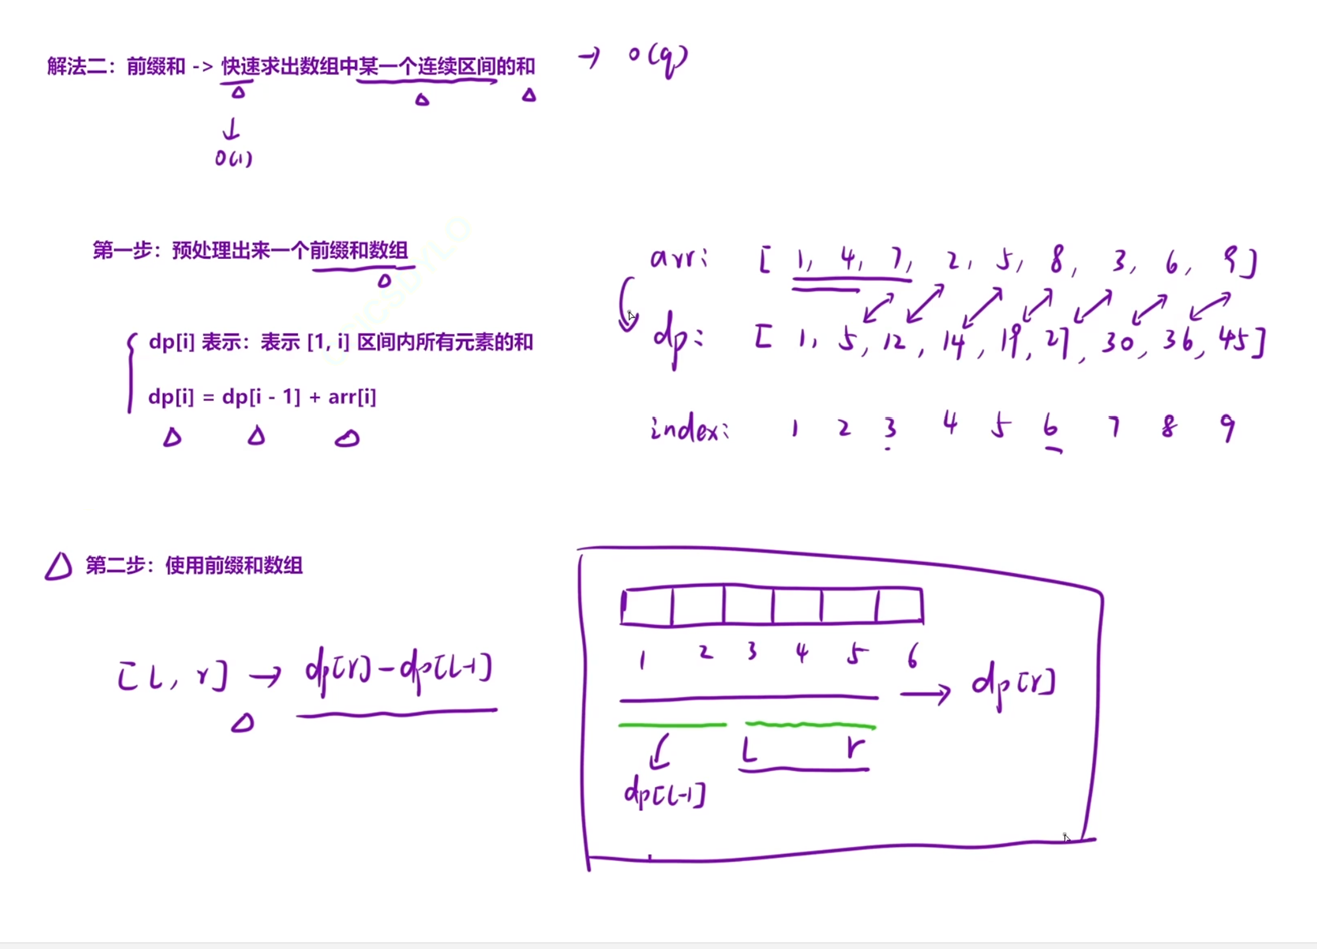 解法二：前缀和 -> 快速求出数组中某一个连续区间的和 → O(q)
↓
O(1)
第一步：预处理出来一个前缀和数组
dp[i] 表示：表示 [1, i] 区间内所有元素的和
dp[i] = dp[i - 1] + arr[i]
arr: [ 1, 4, 7, 2, 5, 8, 3, 6, 9 ]
dp: [ 1, 5, 12, 14, 19, 27, 30, 36, 45 ]
index: 1 2 3 4 5 6 7 8 9
第二步：使用前缀和数组
[l, r] → dp[r] - dp[l-1]
1 2 3 4 5 6
→ dp[r]
l r
dp[l-1]